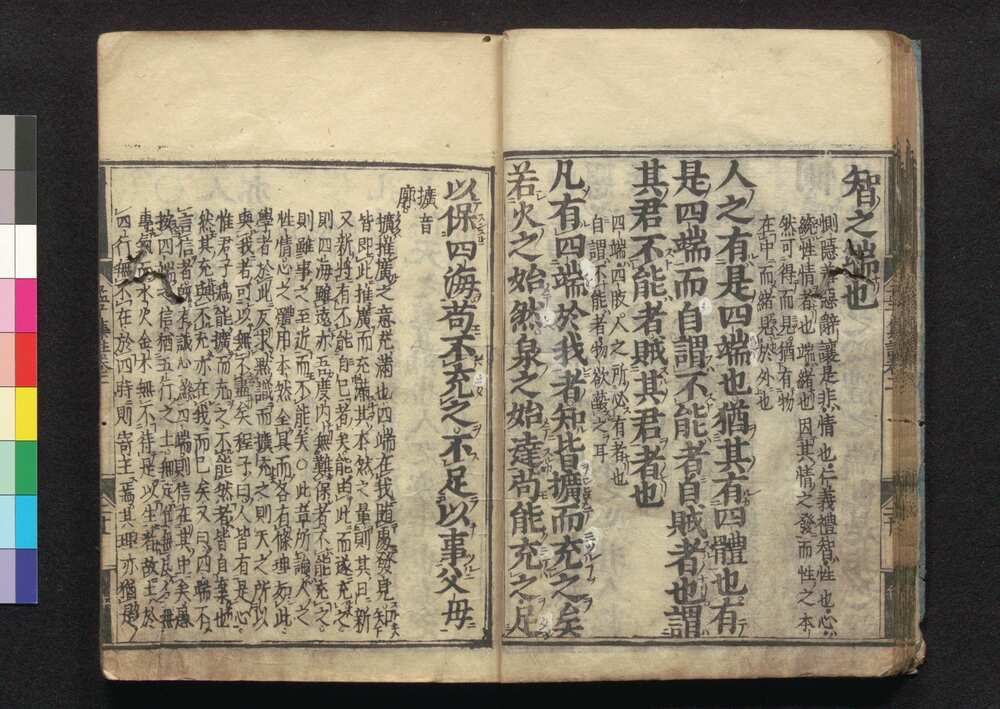 智之端也
惻隱羞惡辭讓是非情也仁義禮智性也心
統性情者也端緒也因其情之發而性之本
然可得而見猶有物
在中而緒見於外也
人之有是四端也猶其有四體也有
是四端而自謂不能者自賊者也謂
其君不能者賊其君者也
四體四肢人之所必有者也
自謂不能者物欲蔽之耳
凡有四端於我者知皆擴而充之矣
若火之始然泉之始達苟能充之足
以保四海苟不充之不足以事父母
擴音
廓
擴推廣之意充滿也四端在我隨處發見知
皆即此推廣而充滿其本然之量則其日新
又新將有不能自已者矣能由此而遂充之
則四海雖遠亦吾度內無難保者不能充之
則雖事之至近而不能矣○此章所論人之
性情心之體用本然全具而各有條理如此
學者於此反求默識而擴充之則天之所以
與我者可以無不盡矣程子曰人皆有是心
惟君子為能擴而充之不能然者皆自棄也
然其充與不充亦在我而已矣又曰四端不
言信者既有誠心為四端則信在其中矣愚
按四端之信猶五行之土無定位無成名無
專氣而水火金木無不待是以生者故土於
四行無不在於四時則寄王焉其理亦猶是